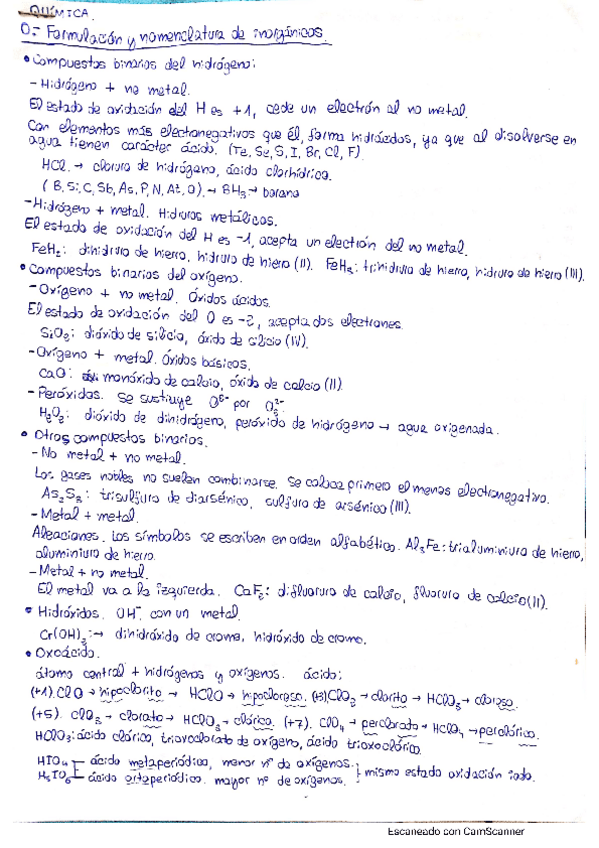 QUÍMICA.
0.- Formulación y nomenclatura de inorgánicos.
• Compuestos binarios del hidrógeno:
- Hidrógeno + no metal.
El estado de oxidación del H es +1, cede un electrón al no metal.
Con elementos más electronegativos que él, forma hidrácidos, ya que al disolverse en
agua tienen carácter ácido. (Te, Se, S, I, Br, Cl, F).
HCl → cloruro de hidrógeno, ácido clorhídrico.
(B, Si, C, Sb, As, P, N, At, O). → BH3 → borano
- Hidrógeno + metal. Hidruros metálicos.
El estado de oxidación del H es -1, acepta un electrón del no metal.
FeH2: dihidruro de hierro, hidruro de hierro (II). FeH3: trihidruro de hierro, hidruro de hierro (III).
• Compuestos binarios del oxígeno.
- Oxígeno + no metal. Óxidos ácidos.
El estado de oxidación del O es -2, acepta dos electrones.
SiO2: dióxido de silicio, óxido de silicio (IV).
- Oxígeno + metal. Óxidos básicos.
CaO: monóxido de calcio, óxido de calcio (II).
- Peróxidos. Se sustituye O²⁻ por O2²⁻.
H2O2: dióxido de dihidrógeno, peróxido de hidrógeno → agua oxigenada.
• Otros compuestos binarios.
- No metal + no metal.
Los gases nobles no suelen combinarse. Se coloca primero el menos electronegativo.
As2S3: trisulfuro de diarsénico, sulfuro de arsénico (III).
- Metal + metal.
Aleaciones. Los símbolos se escriben en orden alfabético. Al3Fe: trialuminiuro de hierro,
aluminiuro de hierro.
- Metal + no metal.
El metal va a la izquierda. CaF2: difluoruro de calcio, fluoruro de calcio (II).
• Hidróxidos. OH⁻ con un metal.
Cr(OH)2 → dihidróxido de cromo, hidróxido de cromo.
• Oxoácido.
átomo central + hidrógenos y oxígenos. ácido:
(+1). ClO → hipoclorito → HClO → hipocloroso. (+3) ClO2 → clorito → HClO3 → cloroso.
(+5). ClO3 → clorato → HClO3 → clórico. (+7). ClO4 → perclorato → HClO4 → perclórico.
HClO3: ácido clórico, trioxoclorato de oxígeno, ácido trioxoclórico.
HIO4 ácido metaperiódico, menor nº de oxígenos. } mismo estado oxidación iodo.
H5IO6 ácido ortoperiódico. mayor nº de oxígenos.
Escaneado con CamScanner